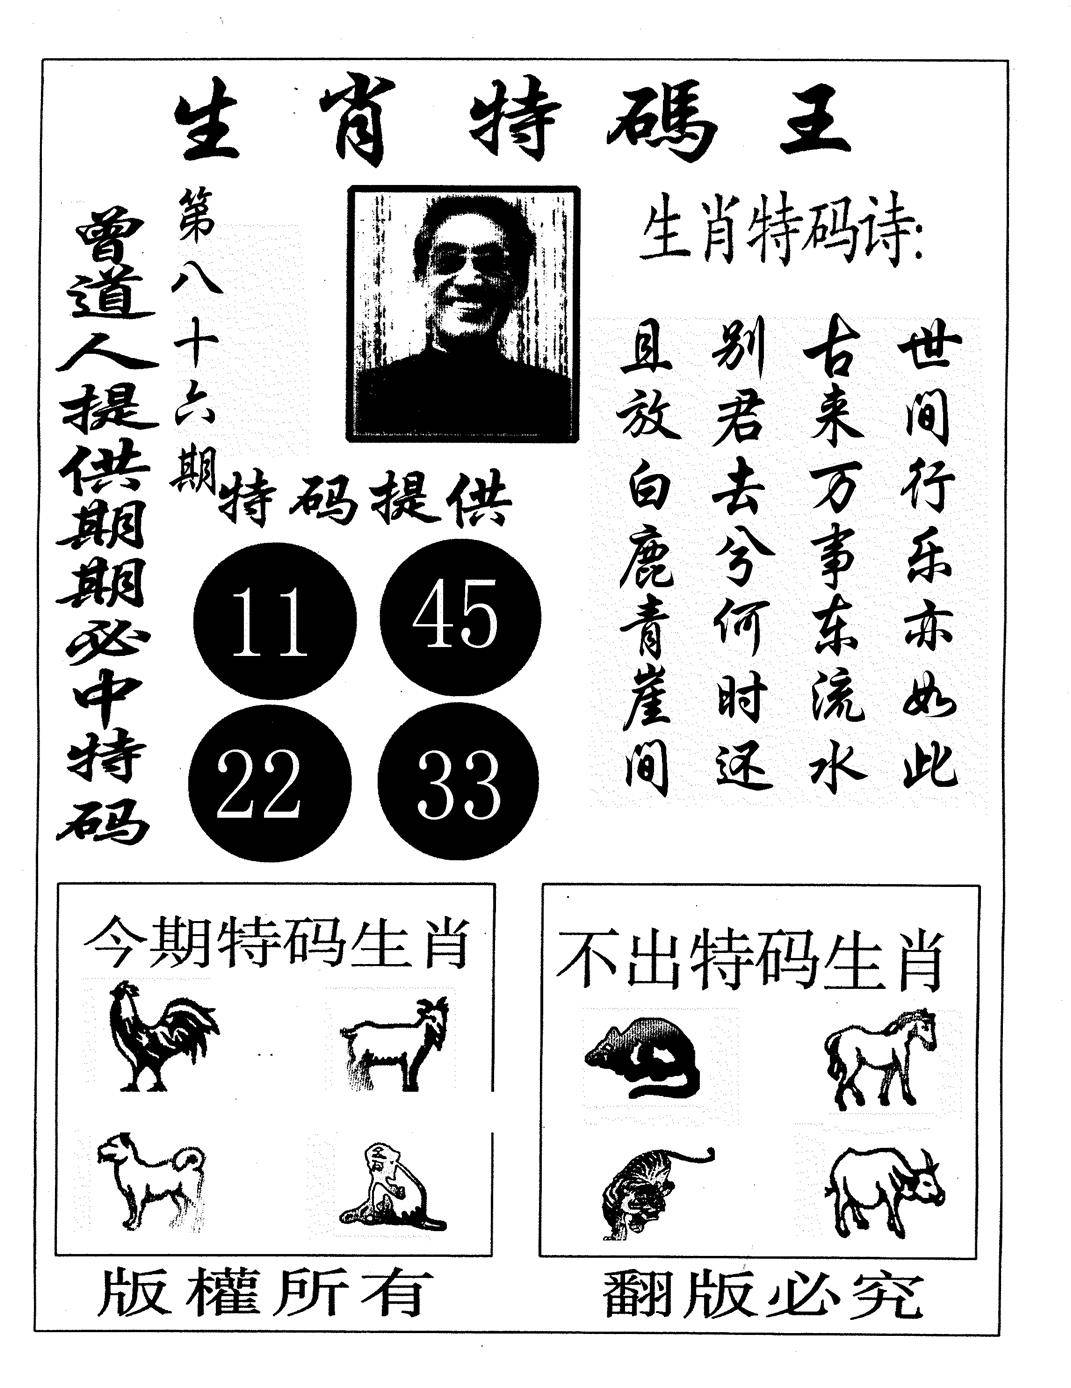 生肖特碼王
曾道人提供期期必中特码
第八十六期
生肖特码诗:
世间行乐亦如此
古来万事东流水
别君去兮何时还
且放白鹿青崖间
特码提供
11 45
22 33
今期特码生肖
不出特码生肖
版權所有
翻版必究